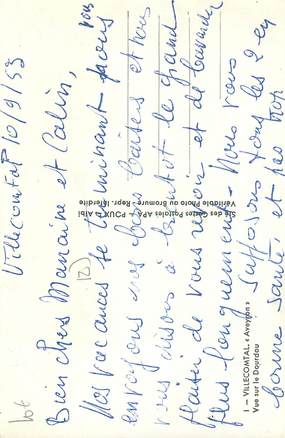 Villecomtal 10/9/53
Bien chers Marraine et Calin,
Nos vacances se terminant nous vous
envoyons nos bons baisers et nous
vous disons à bientôt le grand
plaisir de vous revoir et de bavarder
plus longuement. Nous vous
supposons tous les 2 en
bonne santé et pas trop
(12)
lot
Sté des Cartes Postales APA - POUX - Albi
Véritable Photo au Bromure - Repr. Interdite
1 — VILLECOMTAL « Aveyron »
Vue sur le Dourdou